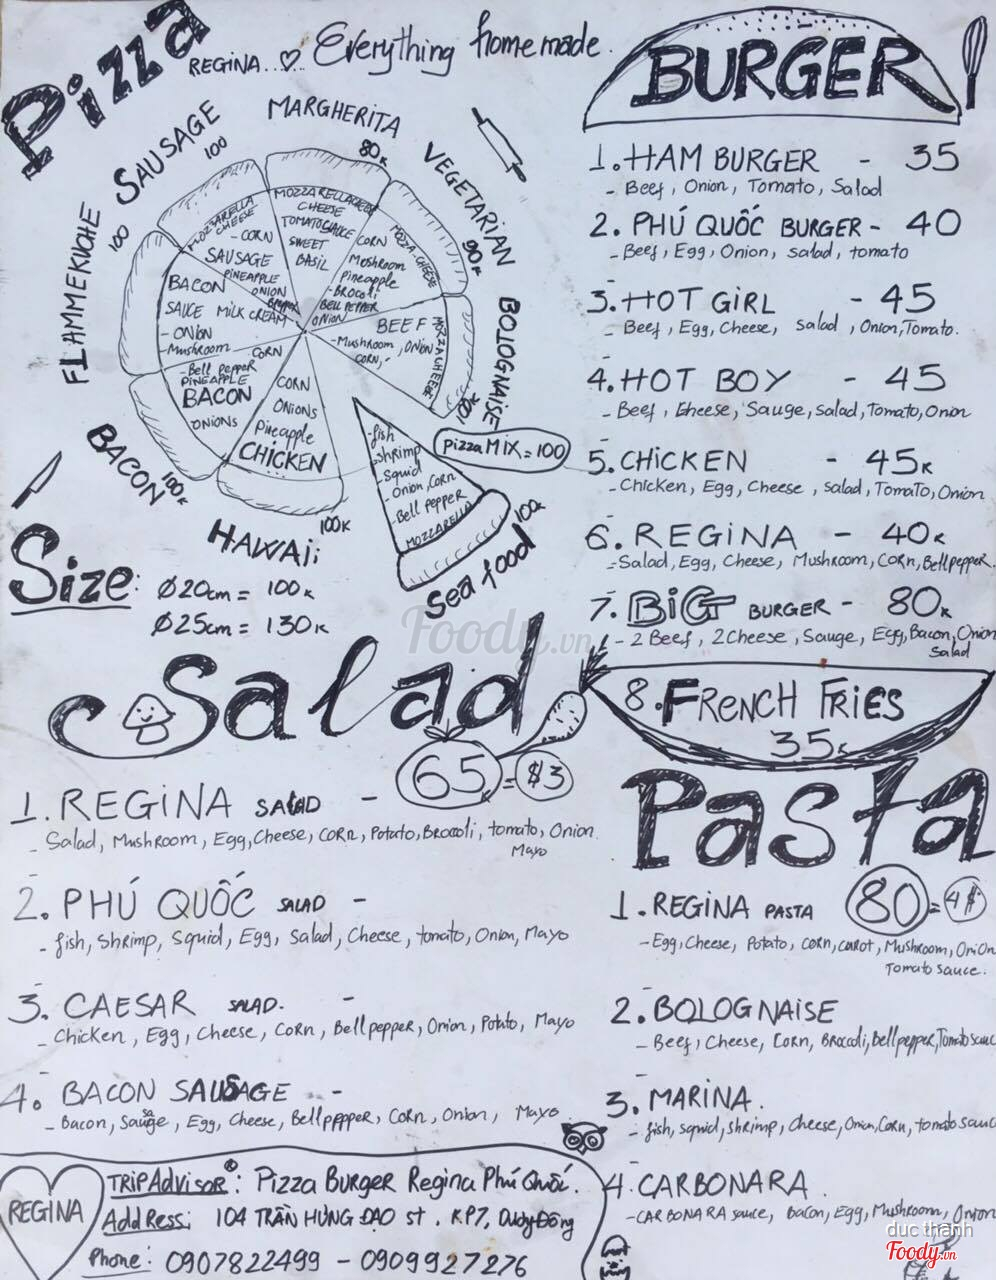 Pizza
REGINA...♡ Everything homemade.
MARGHERITA
80K
MOZZARELLA CHEESE
CHEESE
TOMATO SAUCE
SWEET
BASIL
VEGETARIAN
90K
MOZZA. CHEESE
CORN
Meshroom
Pineapple
- BROCOLI
BELL PEPPER
ONION
BOLOGNAISE
100K
MOZZA CHEESE
BEEF
- Mushroom, ONION
CORN, -
Pizza MIX = 100
- fish
- shrimp
- squid
- Onion, CORN
- Bell pepper
MOZZARELLA
100K
Sea food
HAWAii
100K
CORN
ONIONS
Pineapple
CHICKEN
BACON
100K
CORN
- Bell pepper
PINEAPPLE
BACON
ONIONS
FLAMMEKUCHE
100
BACON
SAUCE MILK CREAM
- ONION
- Mushroom
SAUSAGE
100
MOZZARELLA
CHEESE
- CORN
SAUSAGE
PINEAPPLE
ONION
Size:
Ø20cm = 100K
Ø25cm = 130K
BURGER
1. HAM BURGER - 35
- Beef, Onion, Tomato, Salad
2. PHÚ QUỐC BURGER - 40
- Beef, Egg, Onion, salad, tomato
3. HOT GiRL - 45
- Beef, Egg, Cheese, salad, Onion, Tomato.
4. HOT BOY - 45
- Beef, Cheese, Sauge, Salad, Tomato, Onion
5. CHICKEN - 45K
- Chicken, Egg, Cheese, salad, Tomato, Onion
6. REGINA - 40K
- Salad, Egg, Cheese, Mushroom, Corn, Bell pepper.
7. BiG BURGER - 80K
- 2 Beef, 2 Cheese, Sauge, Egg, Bacon, Onion
Salad
8. FRENCH FRIES
35K
Salad
65K = $3
1. REGINA SALAD -
- Salad, Mushroom, Egg, Cheese, CORN, Potato, Broccoli, tomato, Onion.
Mayo
2. PHÚ QUỐC SALAD -
- fish, Shrimp, Squid, Egg, Salad, Cheese, tomato, Onion, Mayo
3. CAESAR SALAD. -
- Chicken, Egg, Cheese, Corn, Bell pepper, Onion, Potato, Mayo
4. BACON SAUSAGE -
- Bacon, Sausage, Egg, Cheese, Bell pepper, Corn, Onion, Mayo
Pasta
1. REGINA PASTA 80 = 4$
- Egg, Cheese, Potato, Corn, carot, Mushroom, Onion
Tomato sauce.
2. BOLOGNAISE
- Beef, Cheese, Corn, Broccoli, Bell pepper, Tomato sauc
3. MARINA.
- fish, squid, shrimp, Cheese, Onion, Corn, tomato sauc
4. CARBONARA.
- CARBONARA sauce, Bacon, Egg, Mushroom, Onion
REGINA
TRiPAdvisor®: Pizza Burger Regina Phú Quốc.
AddRess: 104 TRẦN HƯNG ĐẠO st, KP7, Dương Đông
Phone: 0907822499 - 0909927276
Foody.vn
duc thanh
Foody.vn